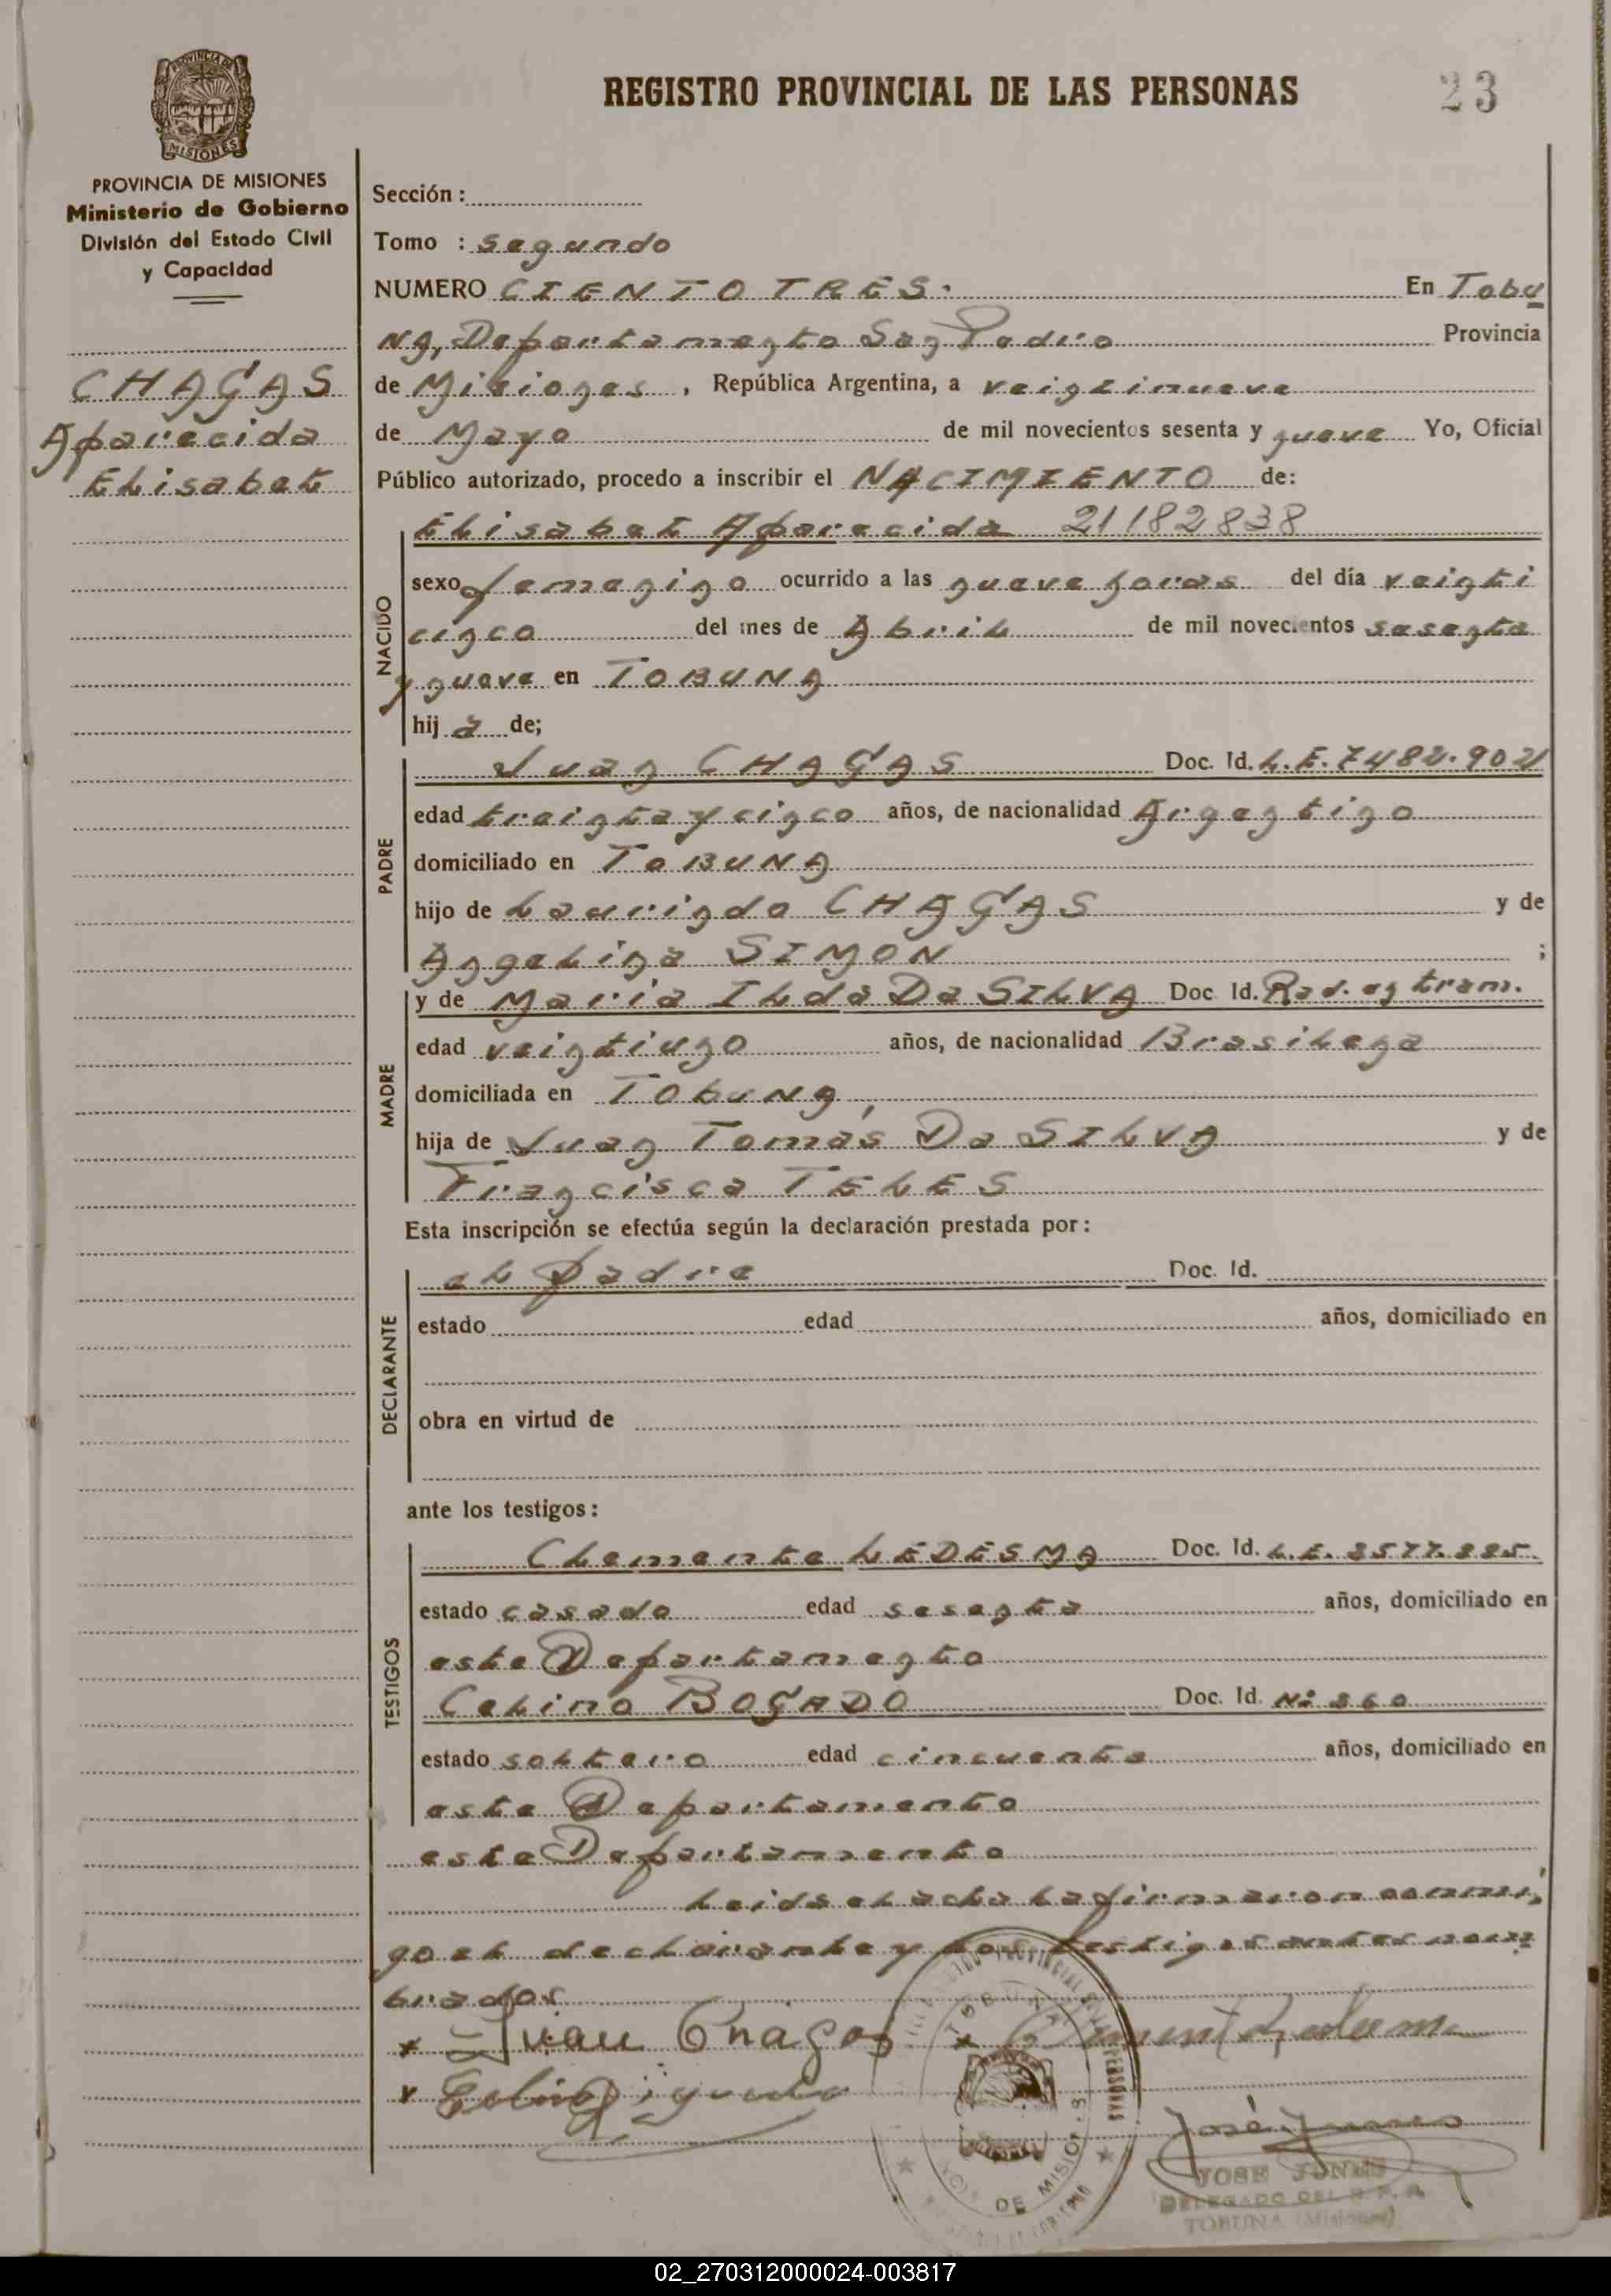 REGISTRO PROVINCIAL DE LAS PERSONAS
23
PROVINCIA DE MISIONES
Ministerio de Gobierno
División del Estado Civil
y Capacidad
CHAGAS
Aparecida
Elisabet
Sección :
Tomo : Segundo
NUMERO CIENTO TRES. En Tobu
NA, Departamento San Pedro Provincia
de Misiones, República Argentina, a veintinueve
de Mayo de mil novecientos sesenta y nueve Yo, Oficial
Público autorizado, procedo a inscribir el NACIMIENTO de:
NACIDO
Elisabet Aparecida 21182838
sexo femenino ocurrido a las nueve horas del día veinti
cinco del mes de Abril de mil novecientos sesenta
y nueve en TOBUNA
hija de;
PADRE
Juan CHAGAS Doc. Id. L.E. 7482.902
edad treinta y cinco años, de nacionalidad Argentino
domiciliado en TOBUNA
hijo de Laurindo CHAGAS y de
Angelina SIMON ;
MADRE
y de Maria Ilda Da SILVA Doc. Id. Rad. en tram.
edad veintiuno años, de nacionalidad Brasilena
domiciliada en TObuNA,
hija de Juan Tomás Da SILVA y de
Francisca TELES
Esta inscripción se efectúa según la declaración prestada por :
DECLARANTE
el Padre Doc. Id.
estado edad años, domiciliado en
obra en virtud de
ante los testigos :
TESTIGOS
Clemente LEDESMA Doc. Id. L.E.
estado casado edad sesenta años, domiciliado en
este Departamento
Celino BOGADO Doc. Id. Nº 360
estado soltero edad cincuenta años, domiciliado en
este Departamento
este Departamento
Leida el acta la firmaron conmi
go el declarante y los testigos antes nom
brados
x Juan Chagas x
x
José Junes
JOSE JUNES
DELEGADO DEL R. P. P.
TOBUNA (Misiones)
DE MISIONES
02_270312000024-003817